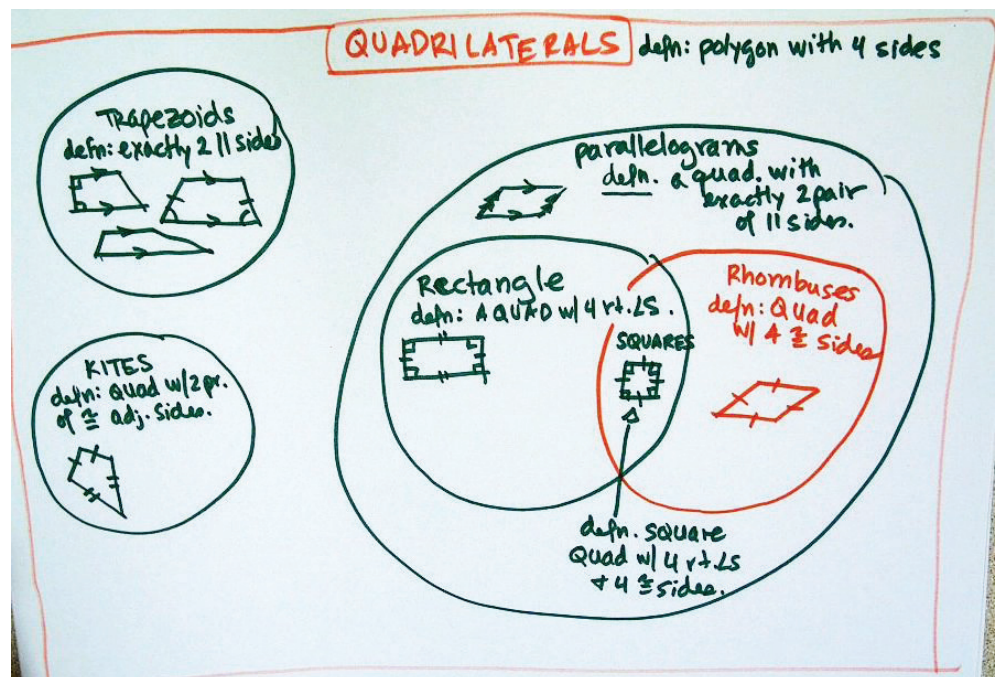 QUADRILATERALS defn: polygon with 4 sides
Trapezoids
defn: exactly 2 || sides
parallelograms
defn. a quad. with
exactly 2 pair
of || sides.
Rectangle
defn: A QUAD w/ 4 rt. ∠S.
Rhombuses
defn: Quad
w/ 4 ≅ sides
SQUARES
KITES
defn: Quad w/2 pr.
of ≅ adj. sides.
defn. square
Quad w/ 4 rt. ∠s
+ 4 ≅ sides.